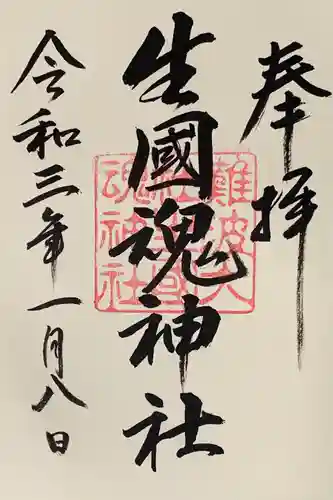 奉拝
生國魂神社
難波大
社生國
魂神社
令和三年一月八日